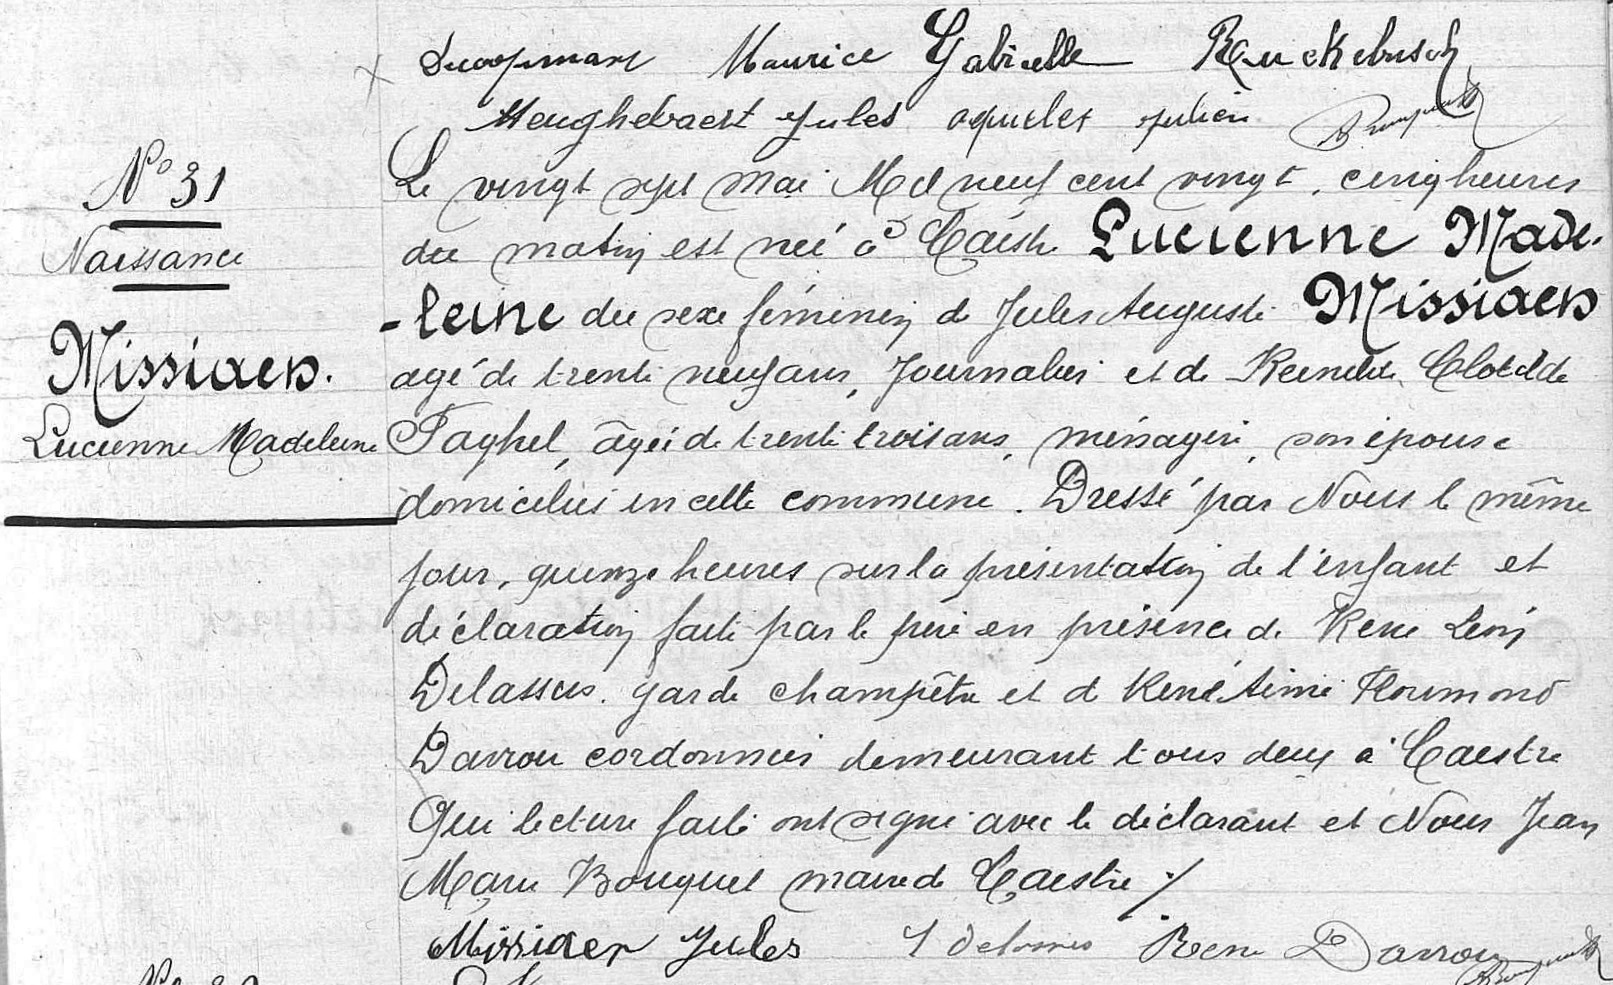 Maurice Gabrielle Ruckebusch
Meughebaert Jules Julien
N° 31
Naissance
Missiaen.
Lucienne Madeleine
Le vingt sept Mai Mil neuf cent vingt, cinq heures
du matin est née à Caëstre Lucienne Made-
-leine du sexe féminin de Jules Auguste Missiaen
agé de trente neuf ans, Journalier et de Clotilde
Taghel, âgée de trente trois ans, ménagère, son épouse
domiciliés en cette commune. Dressé par Nous le même
jour, quinze heures sur la présentation de l'enfant et
déclaration faite par le père en présence de Rene Léon
Delassus. garde champêtre et de René Aimé Floumond
Darrou cordonnier demeurant tous deux à Caestre
Qui lecture faite ont signé avec le déclarant et Nous Jean
Marie Bouquet maire de Caestre ./
Missiaen Jules Delassus Rene Darrou